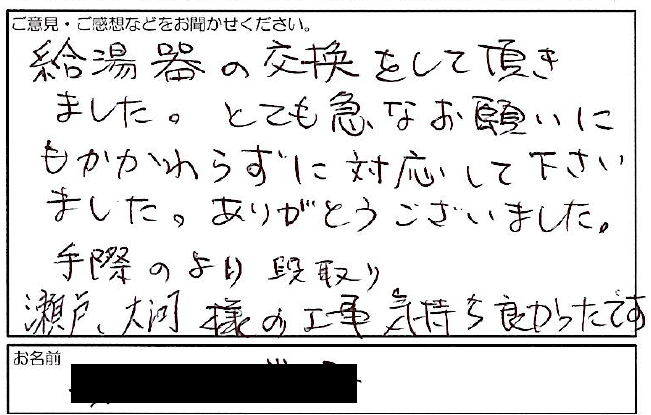 ご意見・ご感想などをお聞かせください。
給湯器の交換をして頂き
ました。とても急なお願いに
もかかわらずに対応して下さい
ました。ありがとうございました。
手際のより段取り
瀬戸、大河様の工事気持ち良かったです
お名前